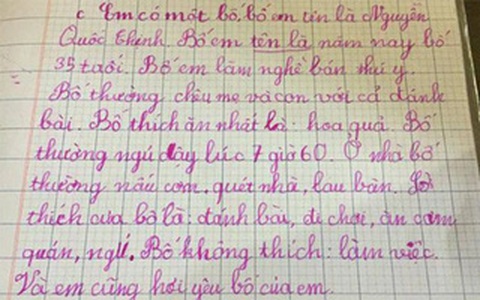 c Em có một bố, bố em tên là Nguyễn
Quốc Thịnh. Bố em tên là năm nay bố
35 tuổi. Bố em làm nghề bán thú y.
Bố thường chêu mẹ và con với cả đánh
bài. Bố thích ăn nhất là: hoa quả. Bố
thường ngủ dậy lúc 7 giờ 60. Ở nhà bố
thường nấu cơm, quét nhà, lau bàn. Sở
thích của bố là: đánh bài, đi chơi, ăn cơm
quán, ngủ. Bố không thích: làm việc.
Và em cũng hơi yêu bố của em.